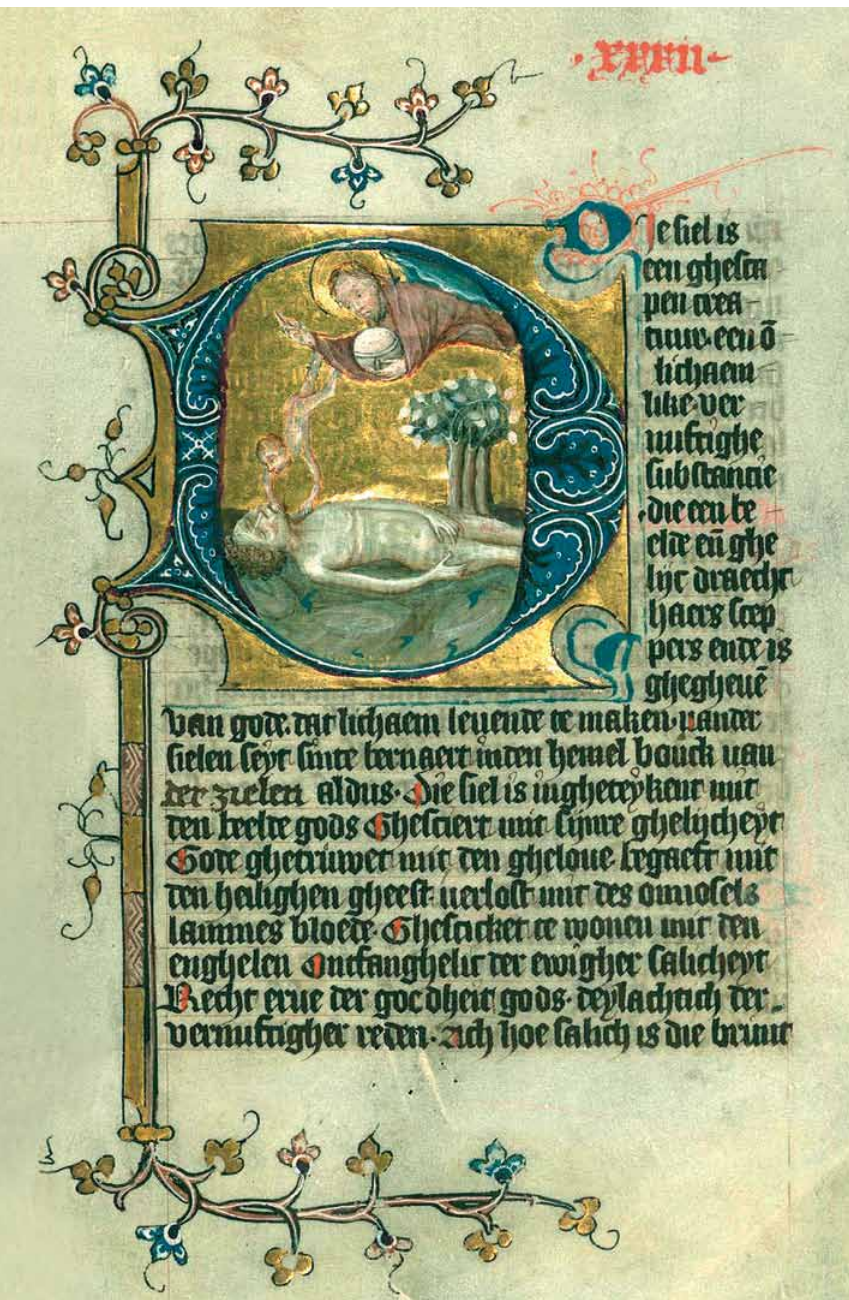 ·xxxii·
Die siel is
een ghesca
pen crea
tuur. een ō
lichaem
like ver
nuftighe
substancie
.die een be
elde eñ ghe
lijc draecht
haers scep
pers ende is
ghegheuē
van gode. dat lichaem leuende te maken. vander
sielen seyt sinte bernaert inden hemel bouck van
der zielen aldus. Die siel is ingheteykent mit
den beelde gods Ghesciert mit sijnre ghelijcheyt
Gode ghetruwet mit den gheloue. begaeft mit
den heilighen gheest. verlost mit des onnosels
lammes bloede. Ghescicket te wonen mit den
enghelen Ontfanghelic der ewigher salicheyt
Recht erue der gocdheit gods. deylachtich der
vernuftigher reden. Ach hoe salich is die bruut